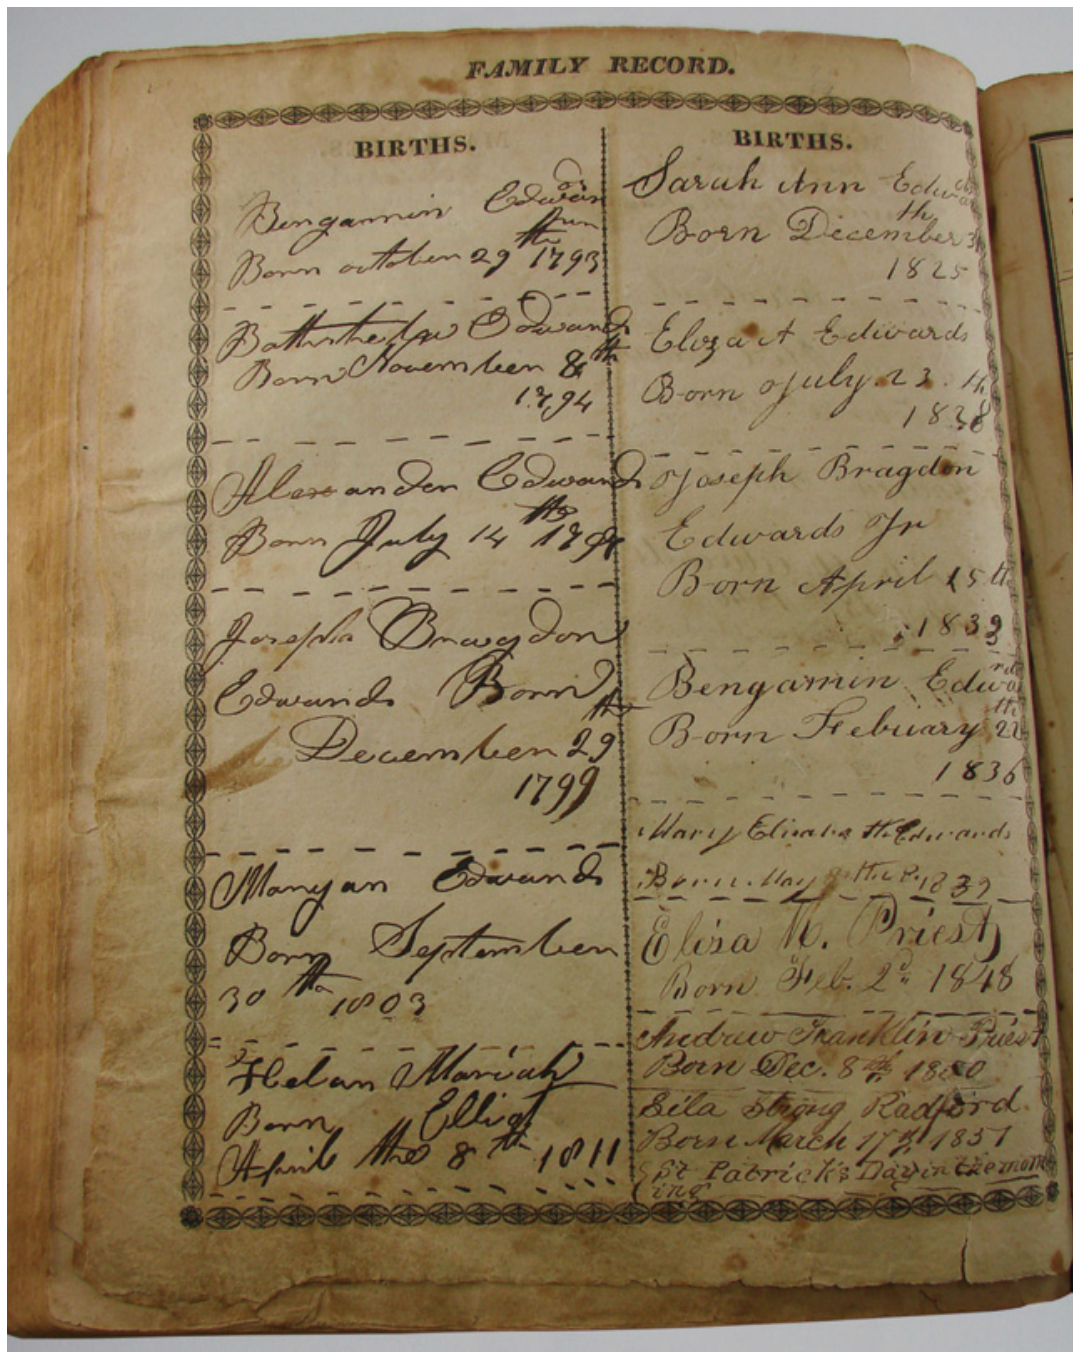 FAMILY RECORD.
BIRTHS.
Bengamin Edwards
Jun
Born october 29th 1793
Bathsheba Edwards
Born November 8th
1794
Alexander Edwards
Born July 14th
Joseph Bragdon
Edwards Born
December 29th
1799
Maryan Edwards
Born September
30th 1803
Helan Mariah
Born Elliot
April the 8th 1811
BIRTHS.
Sarah Ann
Born December
1825
Eloza A Edwards
Born July 23 th
1838
Joseph Bragdon
Edwards Jr
Born April 15th
Bengamin Edwards
Born Febuary 22th
1836
Mary Elizabeth Edwards
Born May
Eliza M. Priest
Born Feb. 2d 1848
Andraw Franklin Priest
Born Dec. 8th
Strong Radford
Born March 17th 1851
St Patricks Day in the morn
ing